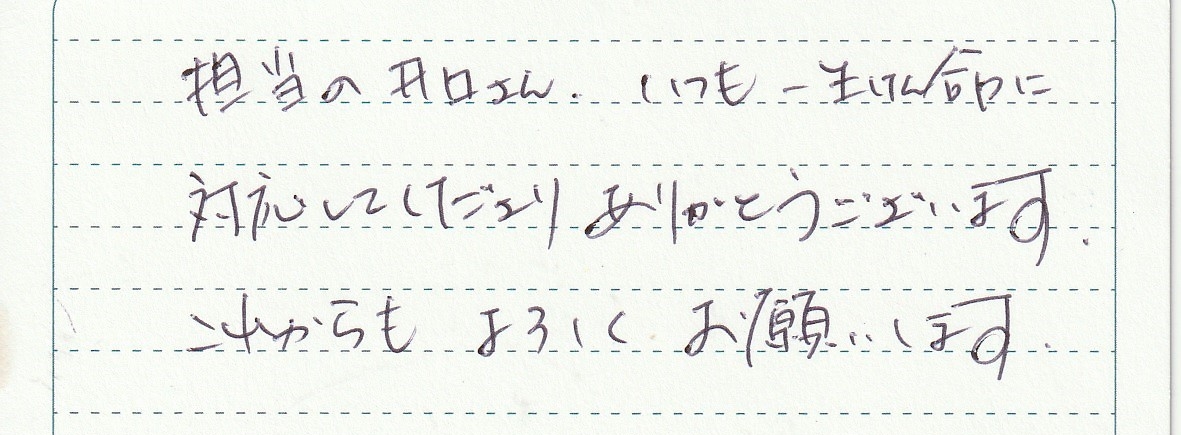 担当の井口さん. いつも一生けん命に
対応してくださり ありがとうございます.
これからも よろしく お願いします.